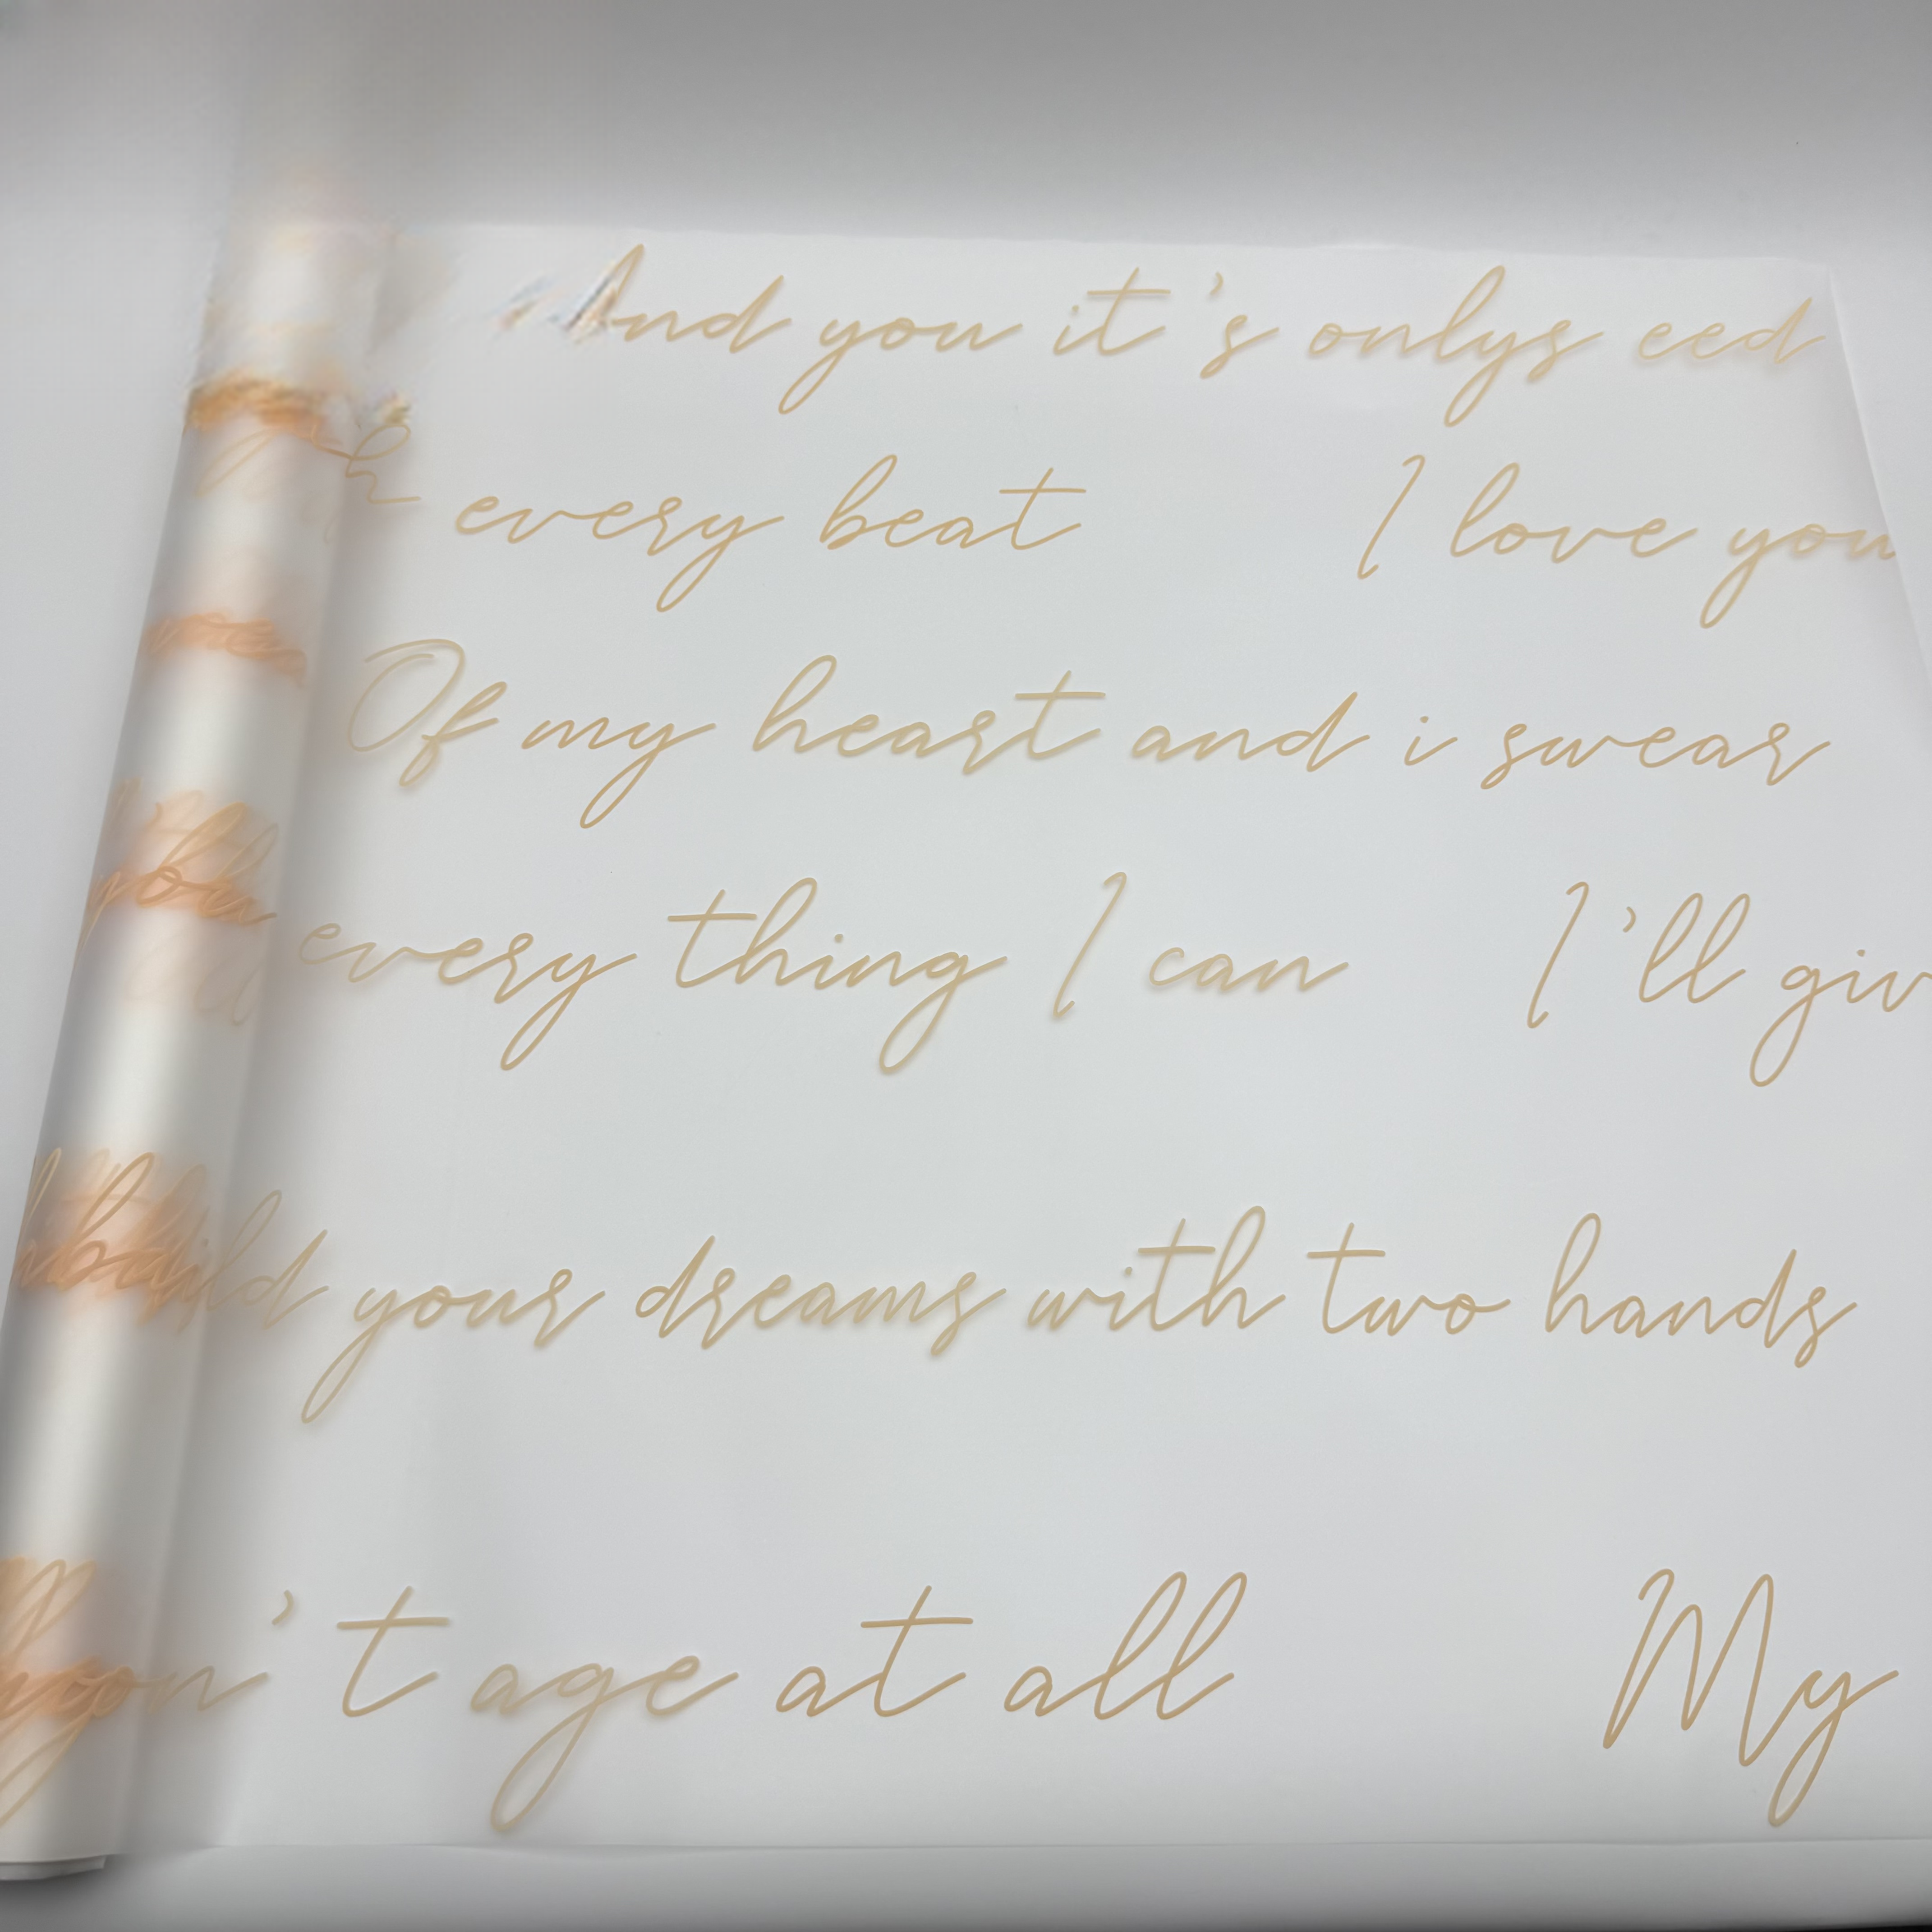 And you it's onlys eed
every beat I love you
Of my heart and i swear
every thing I can I'll giv
build your dreams with two hands
won't age at all My